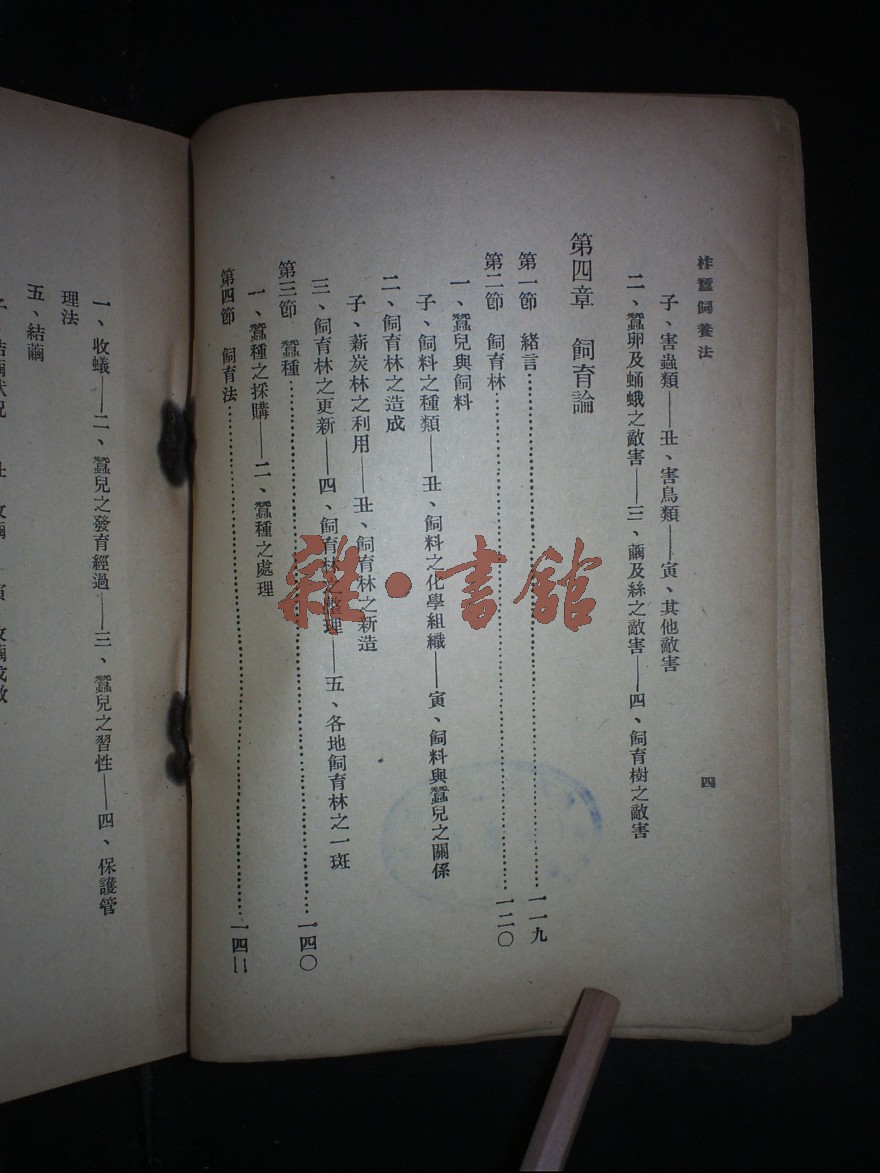 柞蠶飼養法
四
子、害蟲類——丑、害鳥類——寅、其他敵害
二、蠶卵及蛹蛾之敵害——三、繭及絲之敵害——四、飼育樹之敵害
第四章　飼育論
第一節　緒言……………一一九
第二節　飼育林……………一二〇
一、蠶兒與飼料
子、飼料之種類——丑、飼料之化學組織——寅、飼料與蠶兒之關係
二、飼育林之造成
子、薪炭林之利用——丑、飼育林之新造
三、飼育林之更新——四、飼育林之整理——五、各地飼育林之一斑
第三節　蠶種……………一四〇
一、蠶種之採購——二、蠶種之處理
第四節　飼育法……………一四二
一、收蟻——二、蠶兒之發育經過——三、蠶兒之習性——四、保護管
理法
五、結繭
雜·書館